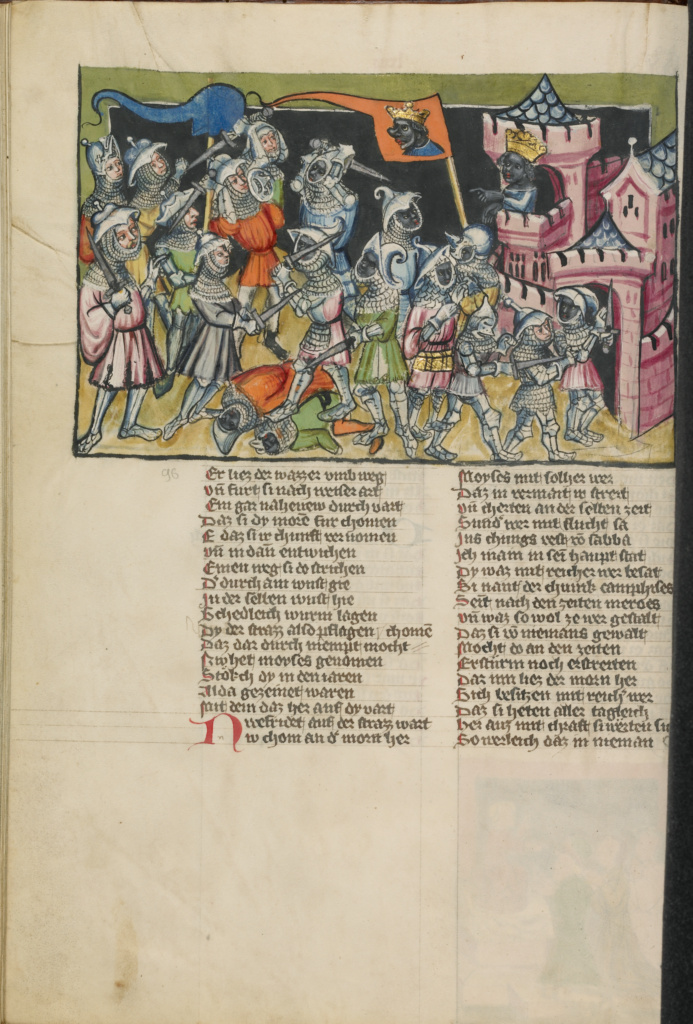 96
Er liez der wazzer vmb weg
vn̄ furt si nach weiser art
Ein gar nahenew durch vart
Daz si dy morn̄ fur chomen
E daz si ir chunft vernomen
vn̄ in dan̄ entwichen
Einen weg si do strichen
D' durch ain wust gie
In der selben wust hie
Schedleich wurm lagen
Dy der strazz also pflagen chomē
Daz dar durch niempt mocht
Nw het moyses genomen
Storch dy in den iaren
Alda gezemet waren
mit dem daz her auf dy vart
Nw efridet auf der strazz wart
Nw chom an d' morn her
Moyses mit solher wer
Daz in vermant ir streit
vn̄ cherten an der selben zeit
Sund' wer mit flucht sa
Ins chunigs vest vō sabba
Ich main in sein haupt stat
Dy waz mit reicher wer besat
Si nant der chunik camphises
Seit nach den zeiten meroes
vn̄ waz so wol ze wer gestalt
Daz si vō niemans gewalt
Mocht do an den zeiten
Ersturm noch erstreiten
Daz inn liez der morn her
Sich besitzen mit reich' wer
Daz si heten aller tagleich
her auz mit chraft si werten
So werleich daz in nieman